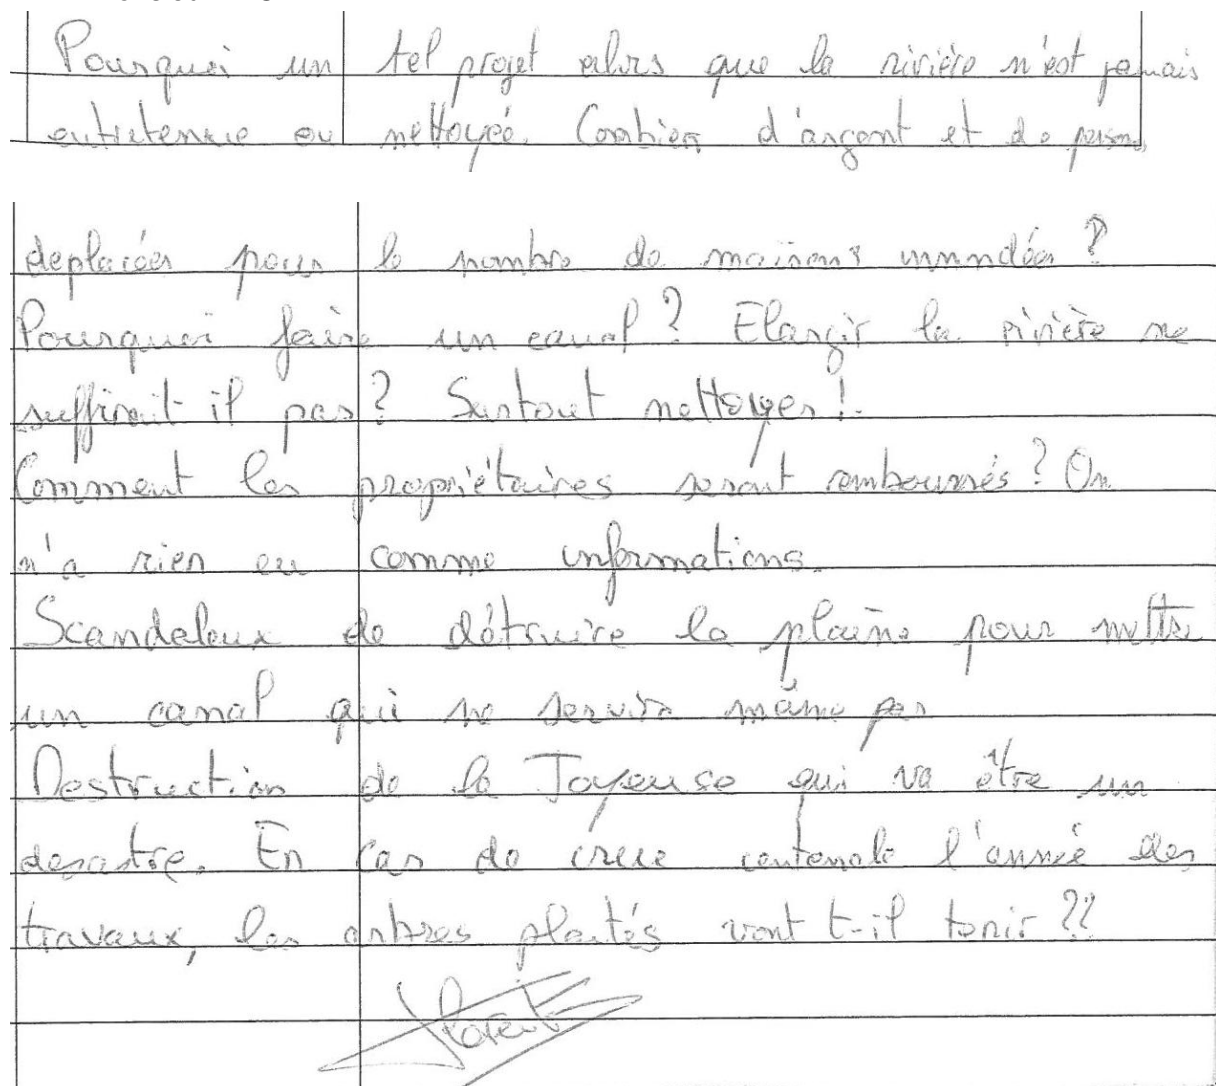 Pourquoi un tel projet alors que la rivière n'est jamais
entretenue ou nettoyée. Combien d'argent et de
deplacées pour le nombre de maisons innondées ?
Pourquoi faire un canal ? Elargir la rivière ne
suffirait il pas ? Surtout nettoyer !
Comment les propriétaires seront remboursés ? On
n'a rien eu comme informations.
Scandaleux de détruire la plaine pour mettre
un canal qui ne servira même pas
Destruction de la Joyeuse qui va être un
desastre. En cas de crue centenale l'année des
travaux, les arbres plantés vont t-il tenir ??